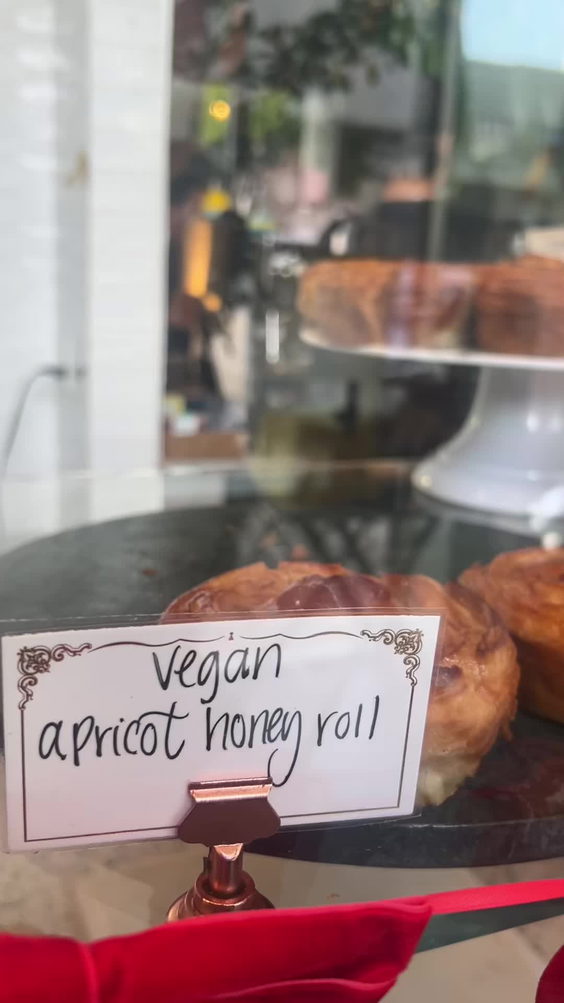 vegan
apricot honey roll